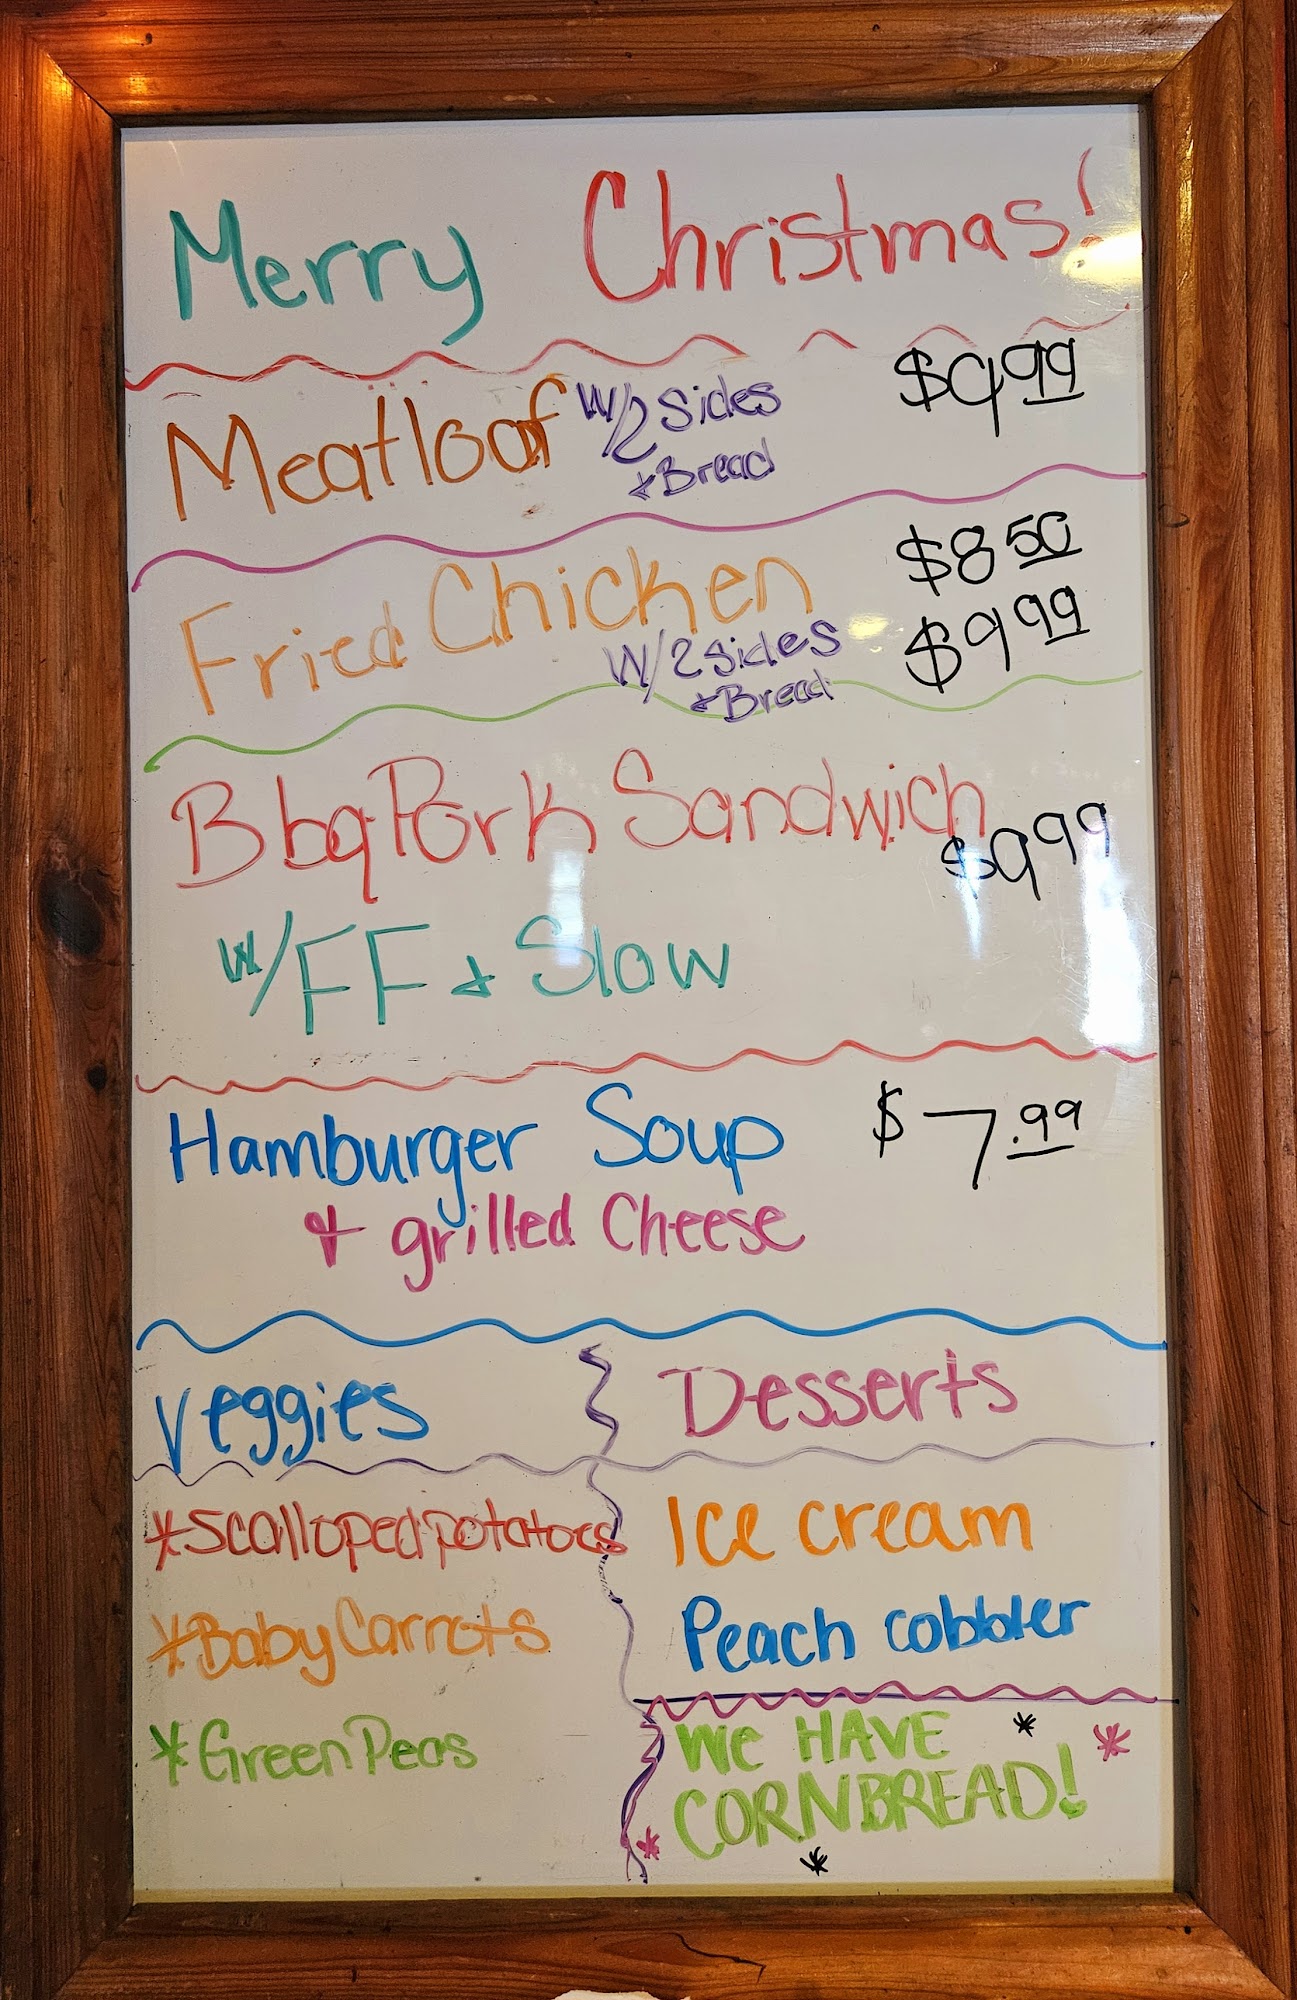 Merry Christmas!
Meatloaf w/2 sides $9.99
+ Bread
Fried Chicken $8.50
w/2 sides $9.99
+ Bread
Bbq Pork Sandwich
$9.99
w/FF + Slaw
Hamburger Soup $7.99
+ grilled Cheese
Veggies Desserts
*Scalloped potatoes Ice cream
*Baby Carrots Peach cobbler
*Green Peas We HAVE
CORNBREAD!